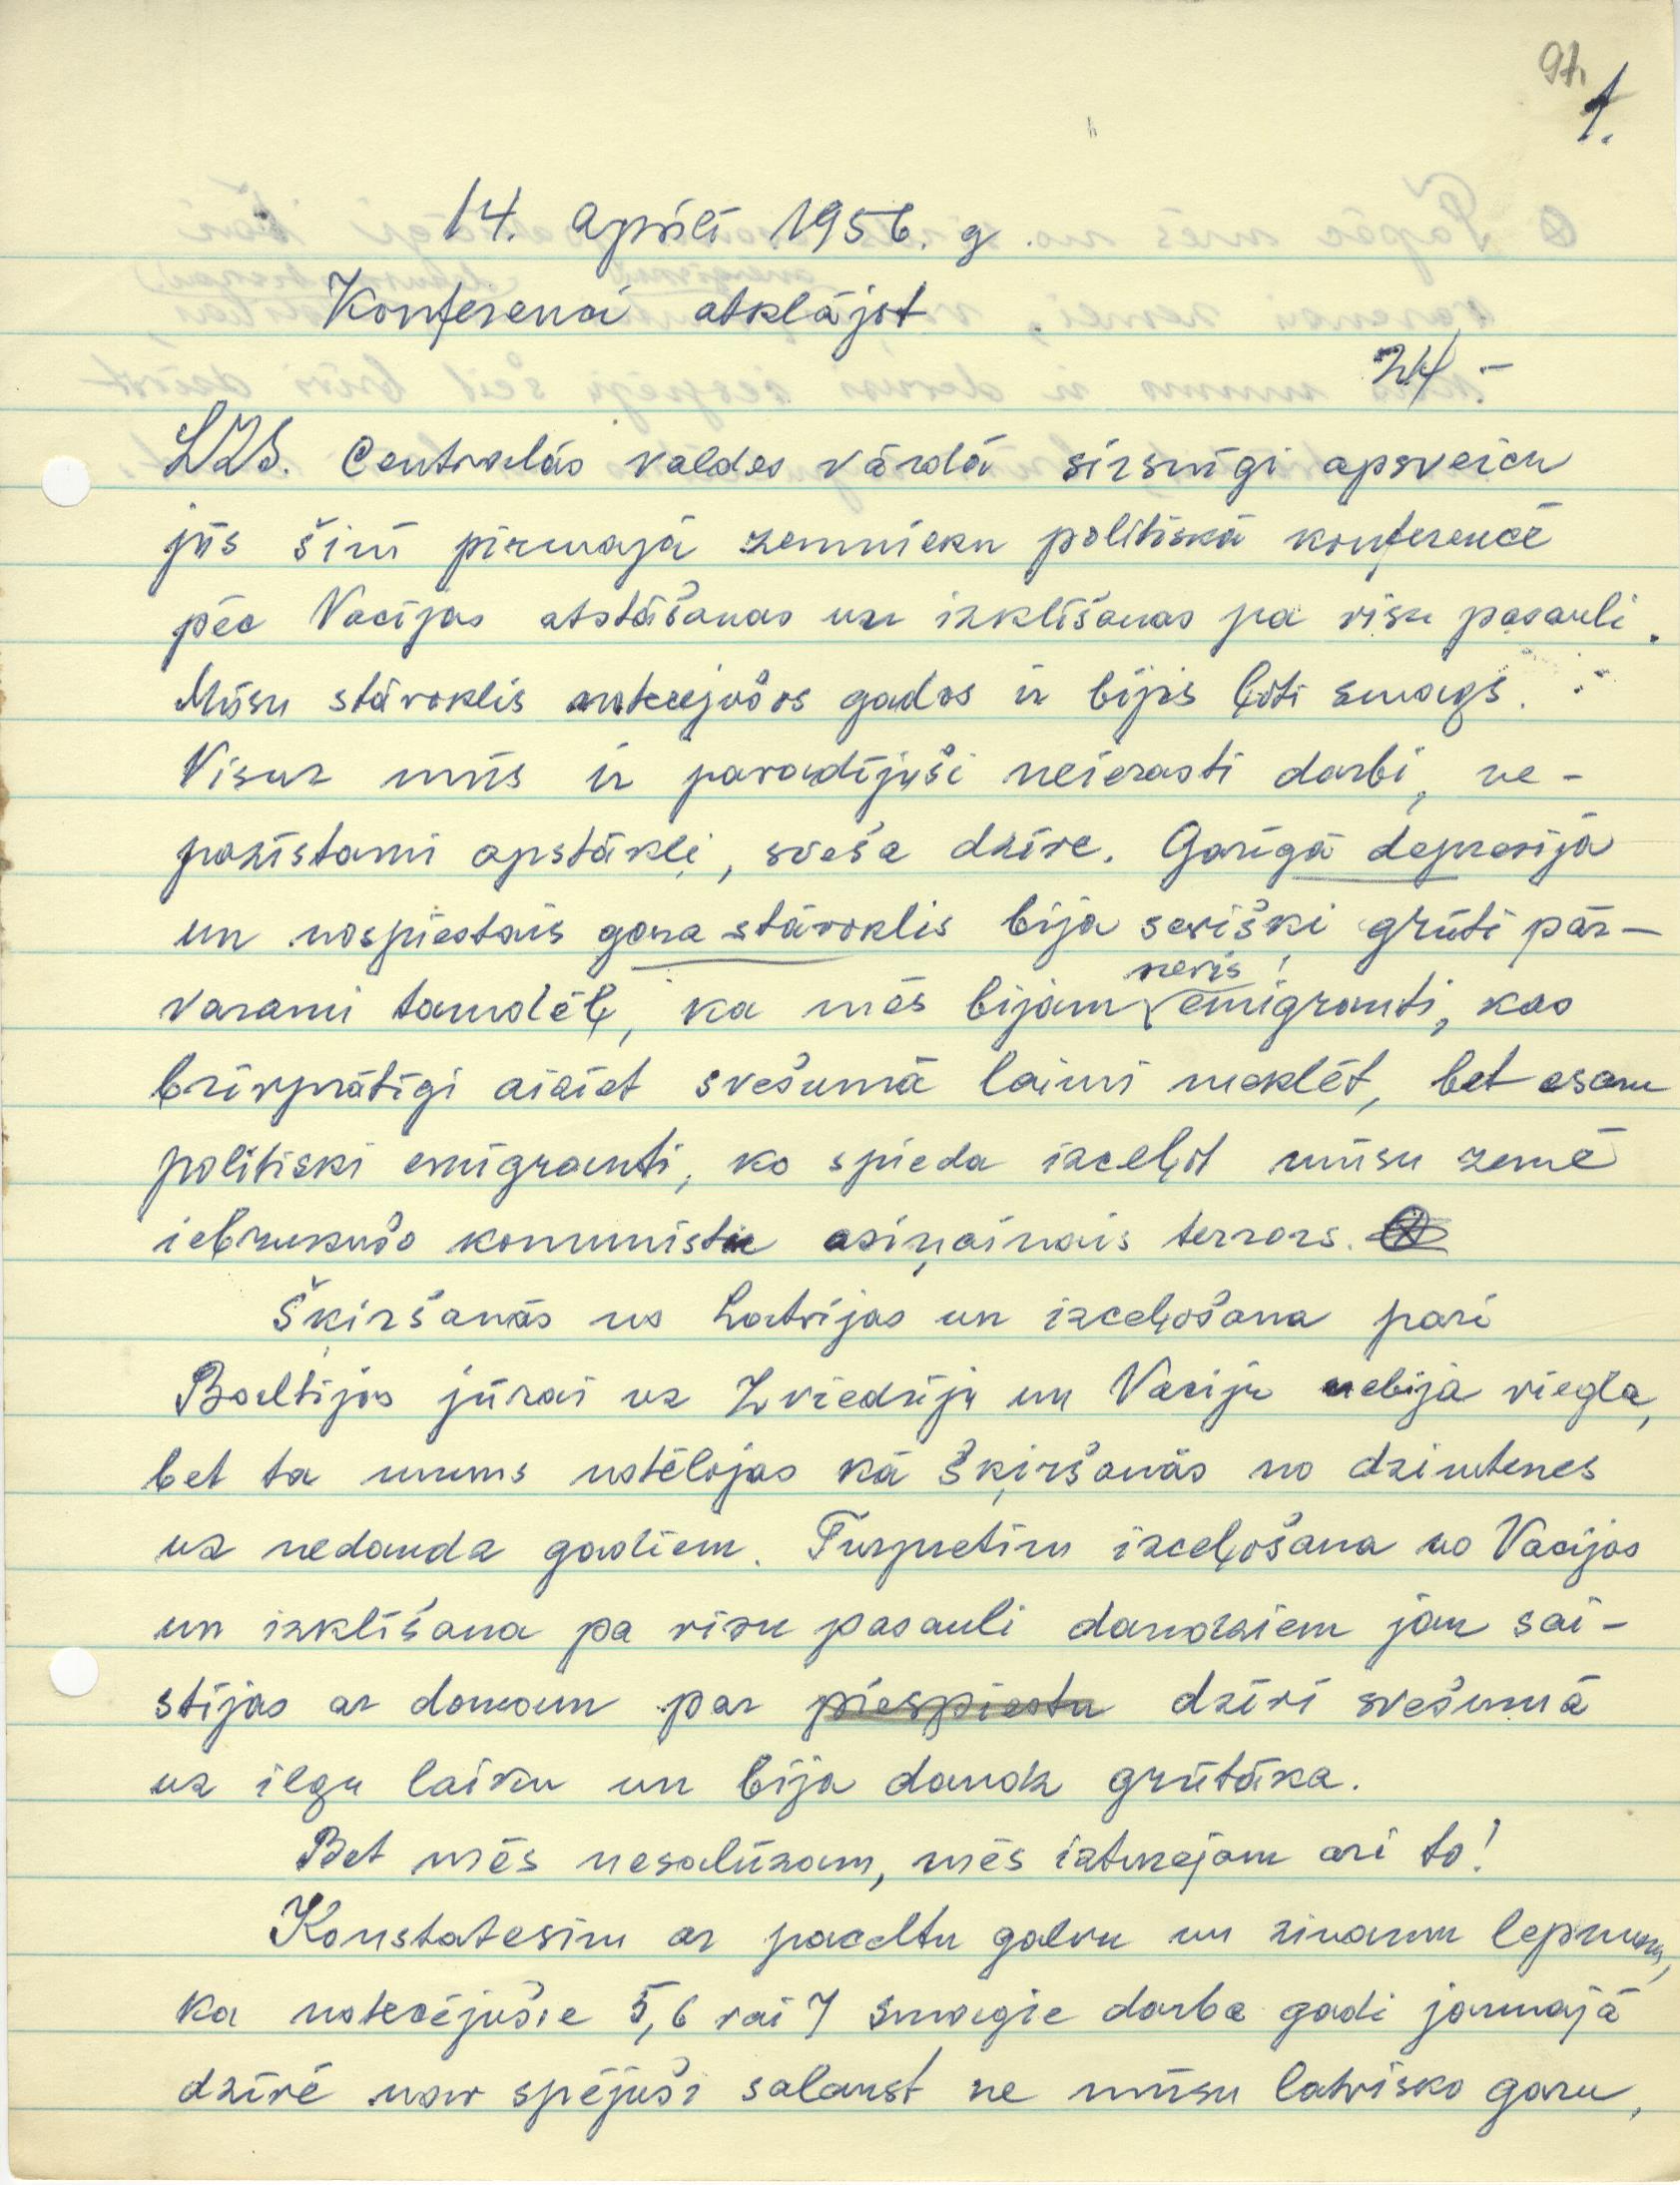 91.
1.
14. aprīlī 1956. g.
Konferenci atklājot
24 –
LZS. Centralās valdes vārdā sirsnīgi apsveicu
jūs šinī pirmajā zemnieku politiskā konferencē
pēc Vacijas atstāšanas un izklīšanas pa visu pasauli.
Mūsu stāvoklis notecejušos gados ir bijis ļoti smags.
Visur mūs ir pavadījuši neierasti darbi, ne-
pazīstami apstākļi, sveša dzīve. Garīgā depresija
un nospiestais gara stāvoklis bija seviški grūti pār-
varami tamdēļ, ka mēs bijam nevis emigranti, kas
brīvprātīgi aiziet svešumā laimi meklēt, bet esam
politiski emigranti, ko spieda izceļot mūsu zemē
iebrukušo komunistu asiņainais terrors.
Šķiršanās no Latvijas un izceļošana pari
Baltijas jūrai uz Zviedriju un Vaciju nebija viegla,
bet ta mums notēlojas kā šķiršanās no dzimtenes
uz nedaudz gadiem. Turpretim izceļošana no Vacijas
un izklīšana pa visu pasauli daudziem jau sai-
stijas ar domam par piespiestu dzīvi svešumā
uz ilgu laiku un bija daudz grūtāka.
Bet mēs nesalūzam, mēs izturejam ari to!
Konstatesim ar paceltu galvu un zinamu lepnumu,
ka notecējušie 5, 6 vai 7 smagie darba gadi jaunajā
dzīvē nav spējuši salauzt ne mūsu latvisko garu,